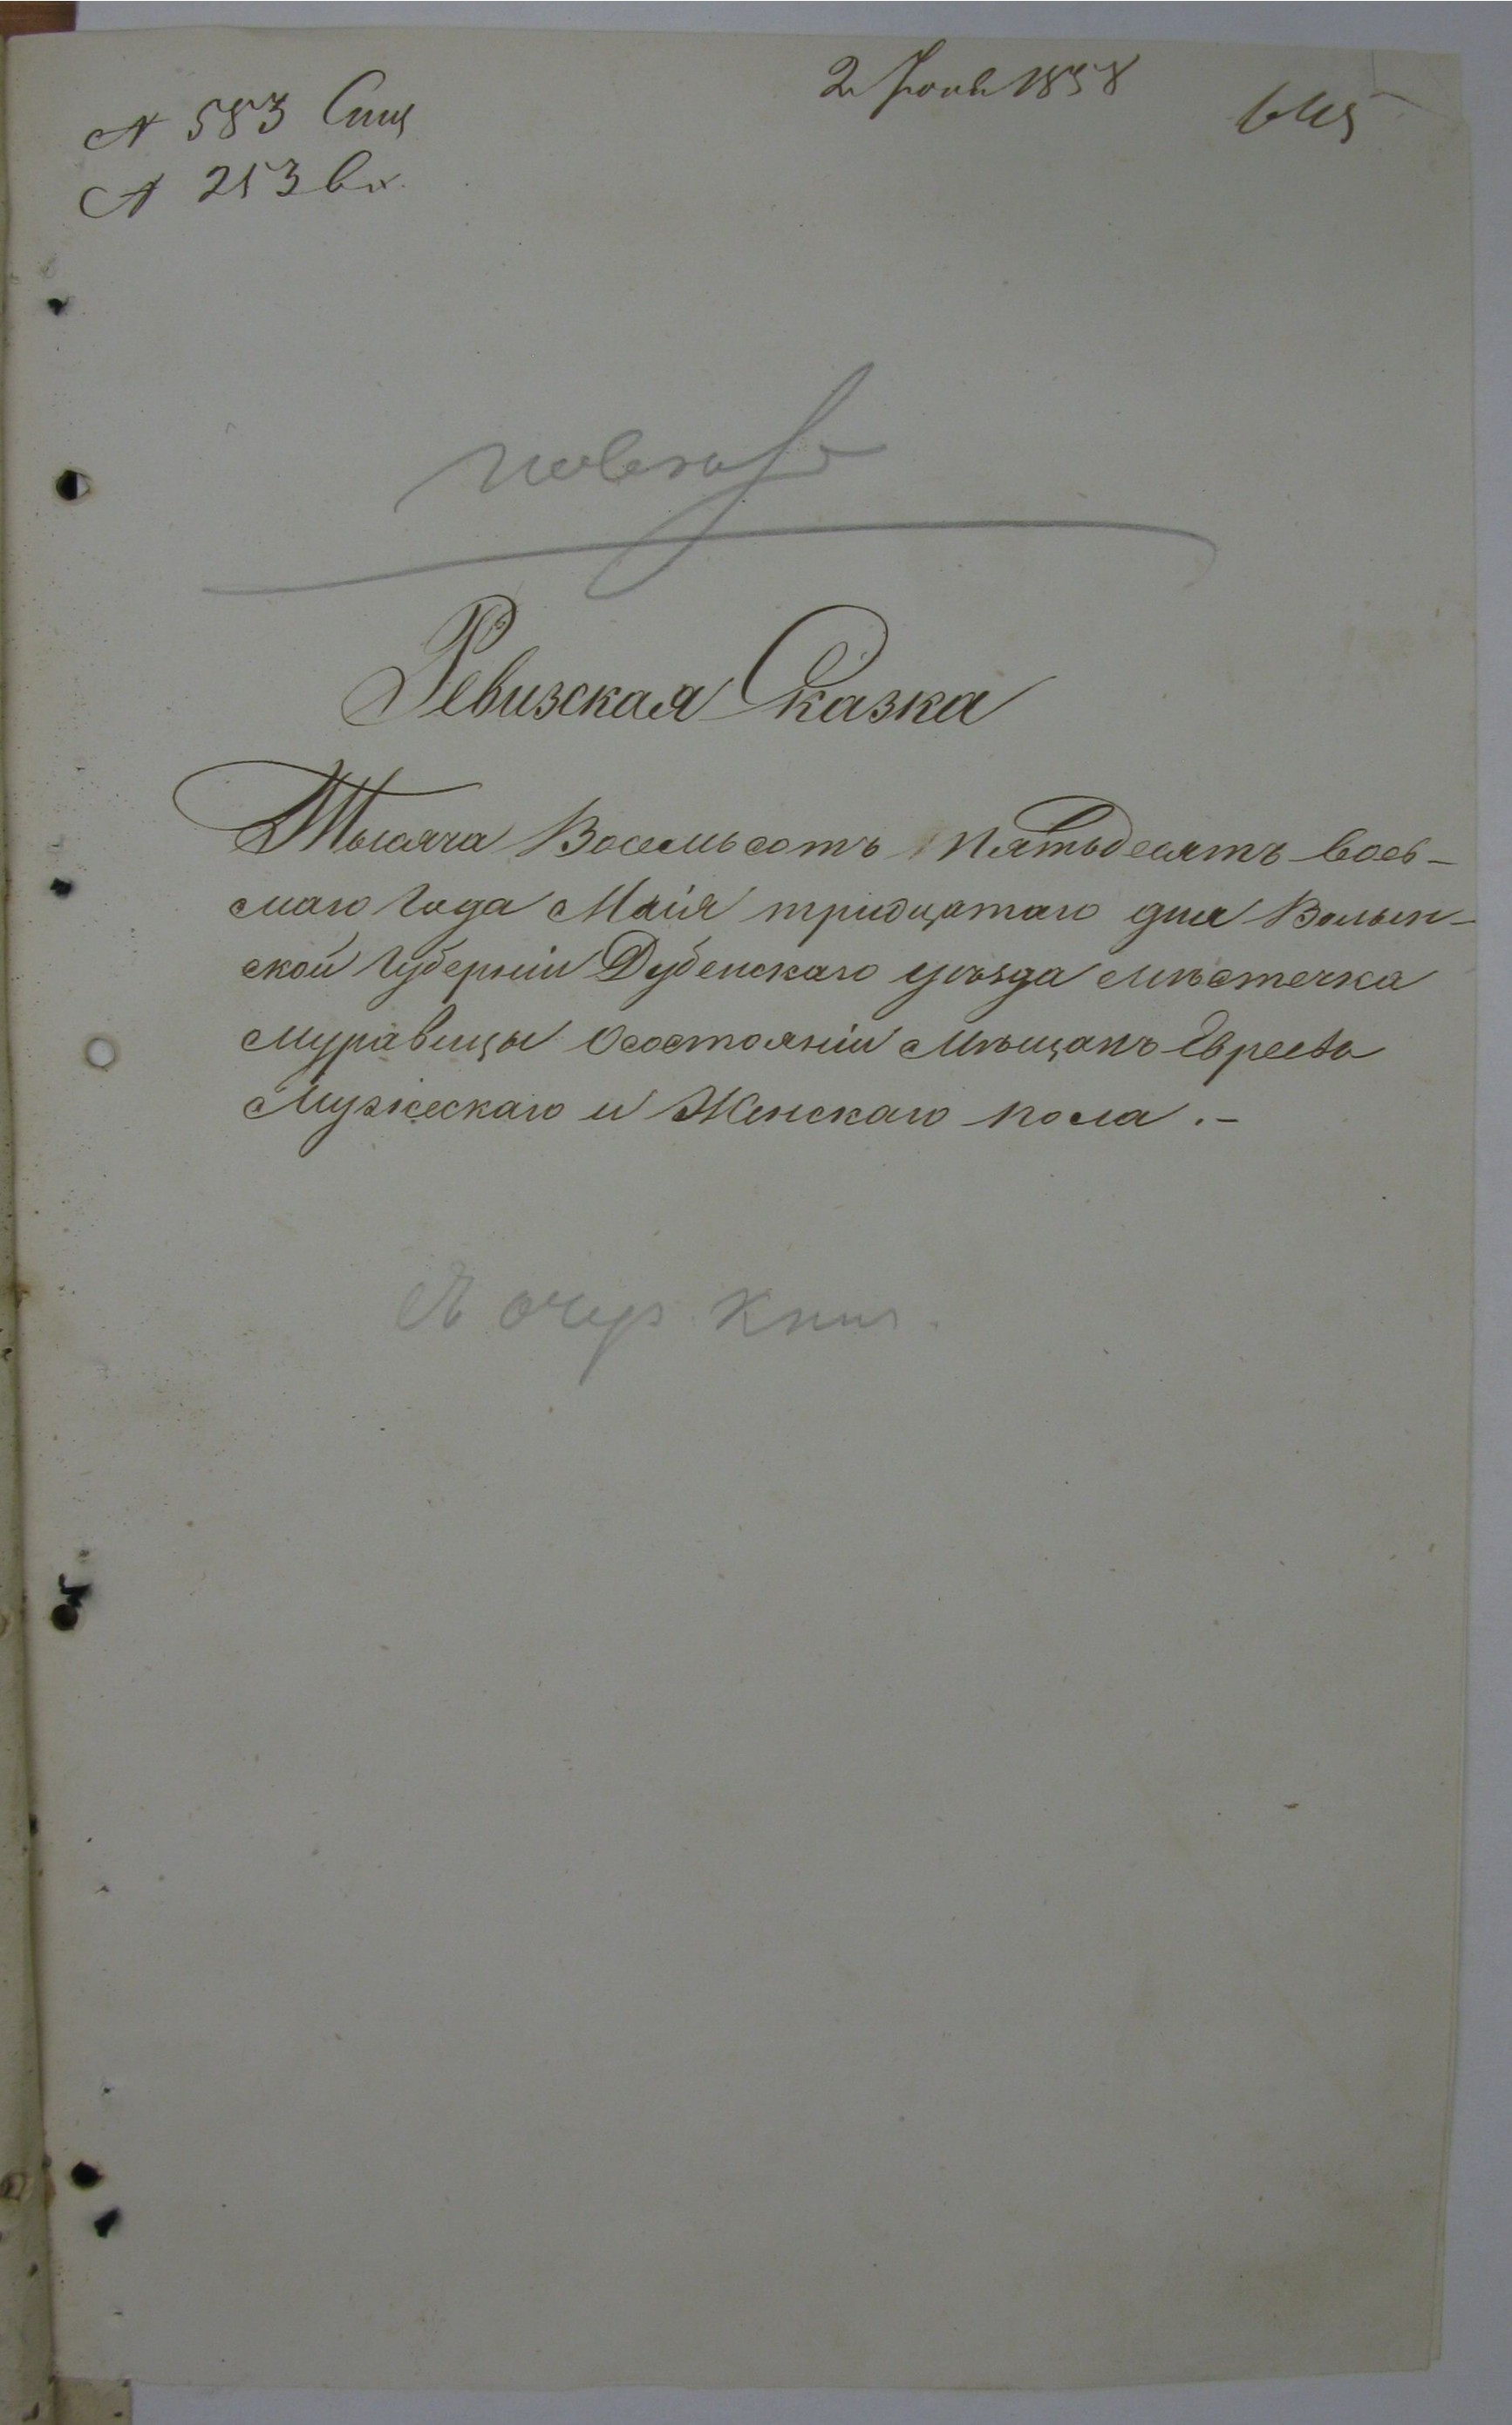 № 583 Спис
№ 253 вх.
2 Іюня 1858
645
Ревизская Сказка
Тысяча Восемьсотъ Пятьдесятъ вось-
маго года Маія тридцатаго дня Волын-
ской Губерніи Дубенскаго уѣзда мѣстечка
Муравицы Осостояніи Мѣщанъ Евреевъ
Мужескаго и Женскаго пола .-